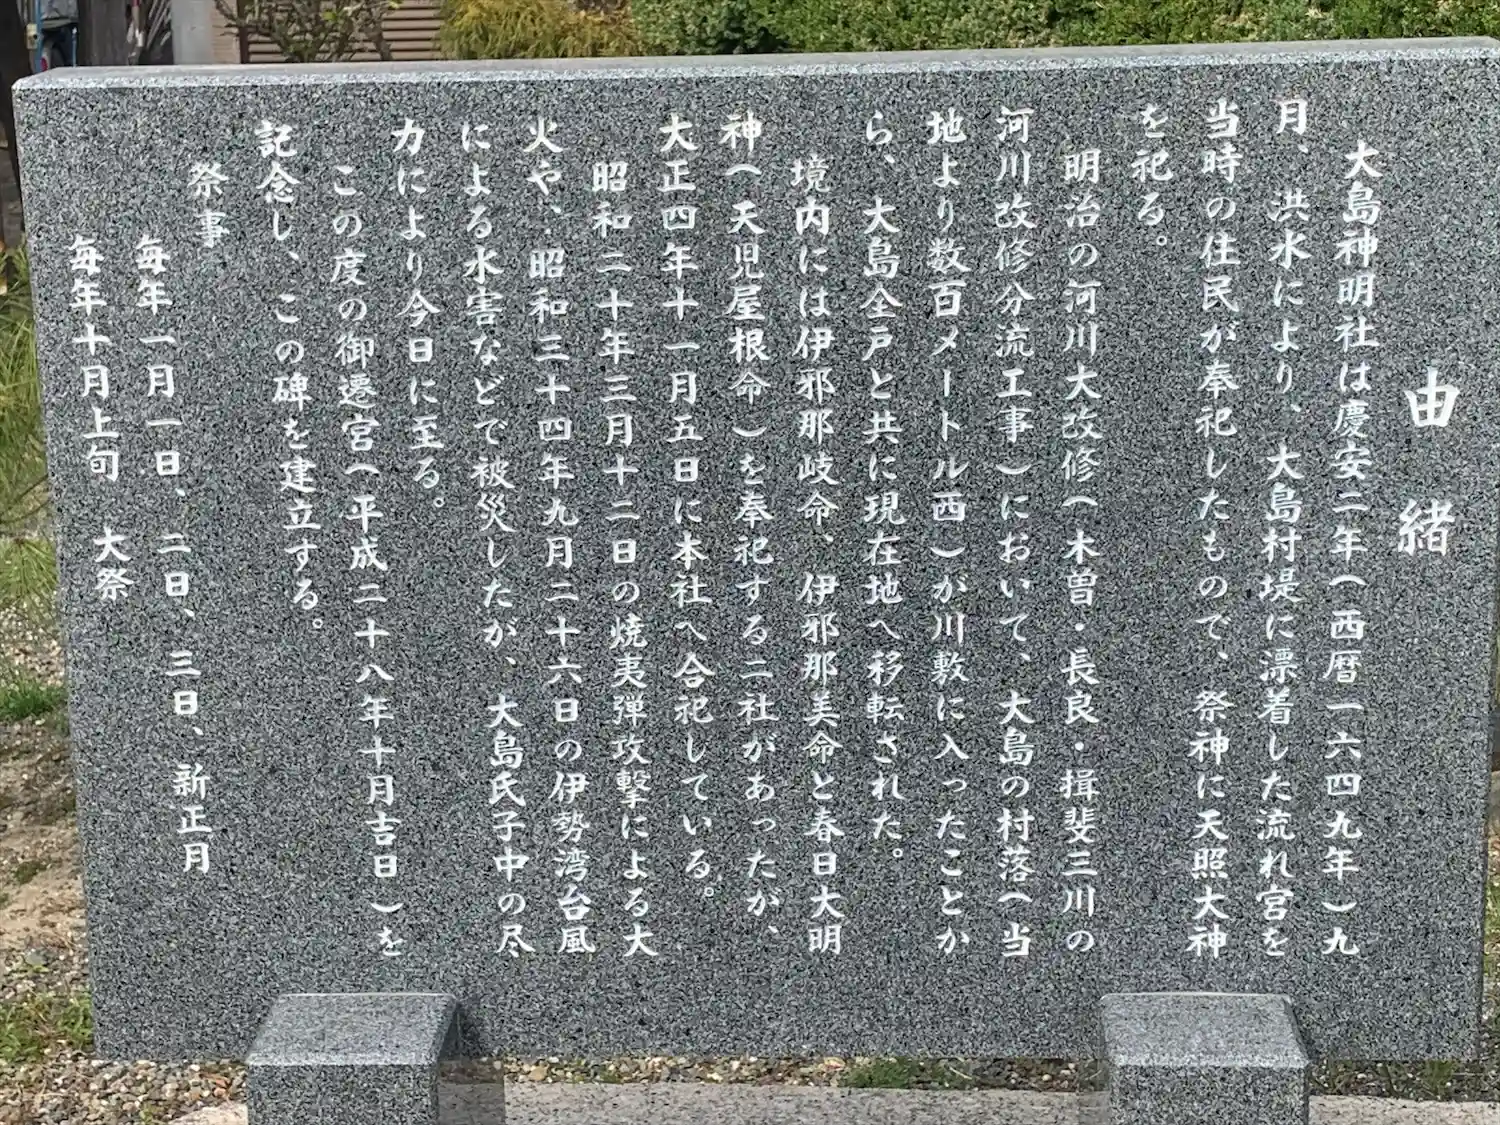 由緒
大島神明社は慶安二年(西暦一六四九年)九
月、洪水により、大島村堤に漂着した流れ宮を
当時の住民が奉祀したもので、祭神に天照大神
を祀る。
明治の河川大改修(木曽・長良・揖斐三川の
河川改修分流工事)において、大島の村落(当
地より数百メートル西)が川敷に入ったことか
ら、大島全戸と共に現在地へ移転された。
境内には伊邪那岐命、伊邪那美命と春日大明
神(天児屋根命)を奉祀する二社があったが、
大正四年十一月五日に本社へ合祀している。
昭和二十年三月十二日の焼夷弾攻撃による大
火や、昭和三十四年九月二十六日の伊勢湾台風
による水害などで被災したが、大島氏子中の尽
力により今日に至る。
この度の御遷宮(平成二十八年十月吉日)を
記念し、この碑を建立する。
祭事
毎年一月一日、二日、三日、新正月
毎年十月上旬 大祭